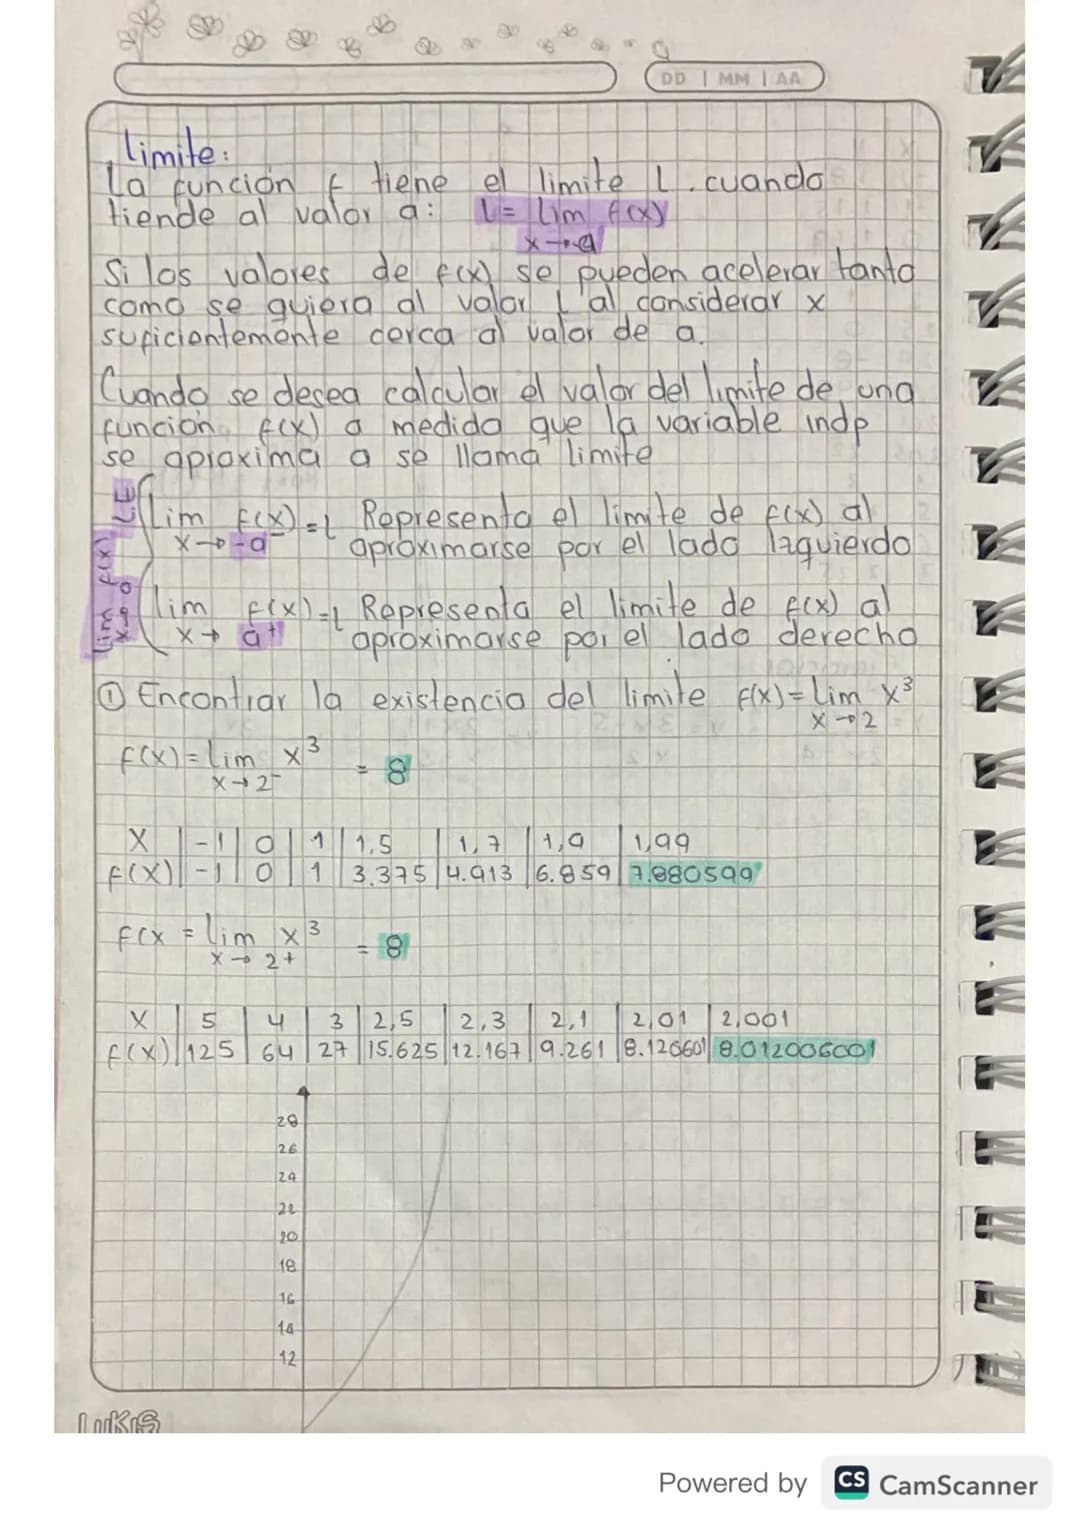 DD | MM | AA
Limite:
La función f tiene el limite L. cuando
tiende al valor a: L = Lim f(x)
x→a
Si los valores de f(x) se pueden acelerar tanto
como se quiera al valor L al considerar x
suficientemente cerca al valor de a.
Cuando se desea calcular el valor del limite de una
función f(x) a medida que la variable indp
se aproxima a se llama limite
Lim f(x) = L Representa el limite de f(x) al
x→-a⁻ aproximarse por el lado Izquierdo
Lim f(x)
x→a
lim f(x) = L Representa el limite de f(x) al
x→a⁺ aproximarse por el lado derecho
① Encontrar la existencia del limite f(x) = Lim x³
x→2
f(x) = Lim x³ = 8
x→2⁻
X | -1 | 0 | 1 | 1,5 | 1,7 | 1,9 | 1,99
f(x) | -1 | 0 | 1 | 3.375 | 4.913 | 6.859 | 7.880599
f(x = Lim x³ = 8
x→2+
X | 5 | 4 | 3 | 2,5 | 2,3 | 2,1 | 2,01 | 2,001
f(x) | 125 | 64 | 27 | 15.625 | 12.167 | 9.261 | 8.120601 | 8.012006001
28
26
24
22
20
18
16
14
12
LUKIS
Powered by CS CamScanner